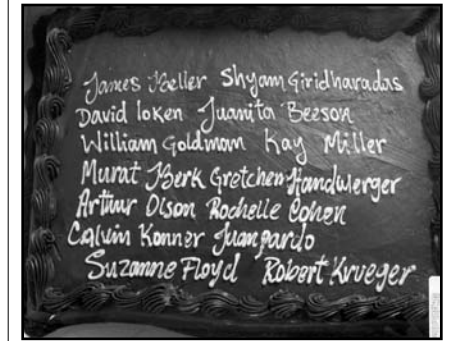 James Heller Shyam Giridharadas
David loken Juanita Beeson
William Goldman Kay Miller
Murat Berk Gretchen Handwerger
Arthur Olson Rochelle Cohen
Calvin Konner Juan pardo
Suzanne Floyd Robert Krueger